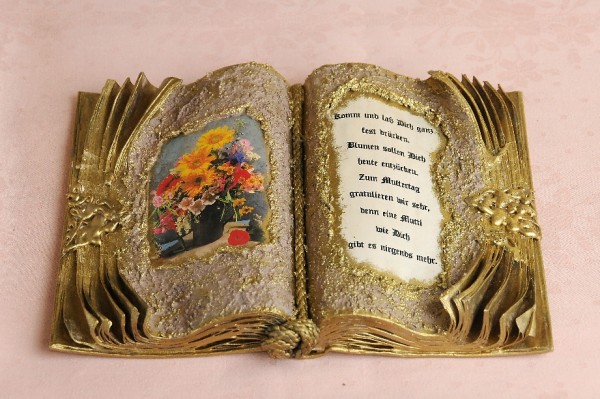 Komm und laß Dich ganz
fest drücken.
Blumen sollen Dich
heute entzücken.
Zum Muttertag
gratulieren wir sehr,
denn eine Mutti
wie Dich
gibt es nirgends mehr.